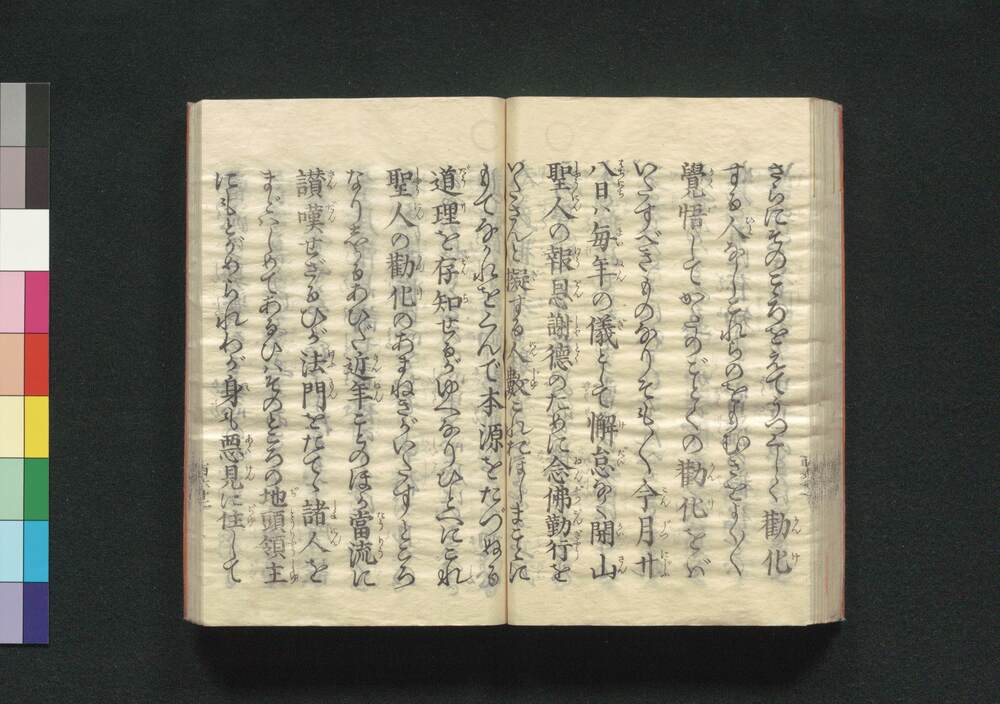 さらにそのこころをえてうつくしく勸化
する人なしこれらのをもむきをよくよく
覺悟してかくのごとくの勸化をば
いたすべきものなりそもそも今月廿
八日ハ毎年の儀として懈怠なく開山
聖人の報恩謝德のために念佛勤行を
いたさんと擬する人數これおほしまことに
もてながれをくんで本源をたづぬる
道理を存知せるがゆへなりひとへにこれ
聖人の勸化のあまねきがいたすところ
なりしかるあひだ近年ことのほか當流に
讃嘆せざるひが法門をたてゝ諸人を
まどハしめてあるひハそのところの地頭領主
にもとがめられわが身も悪見に住して